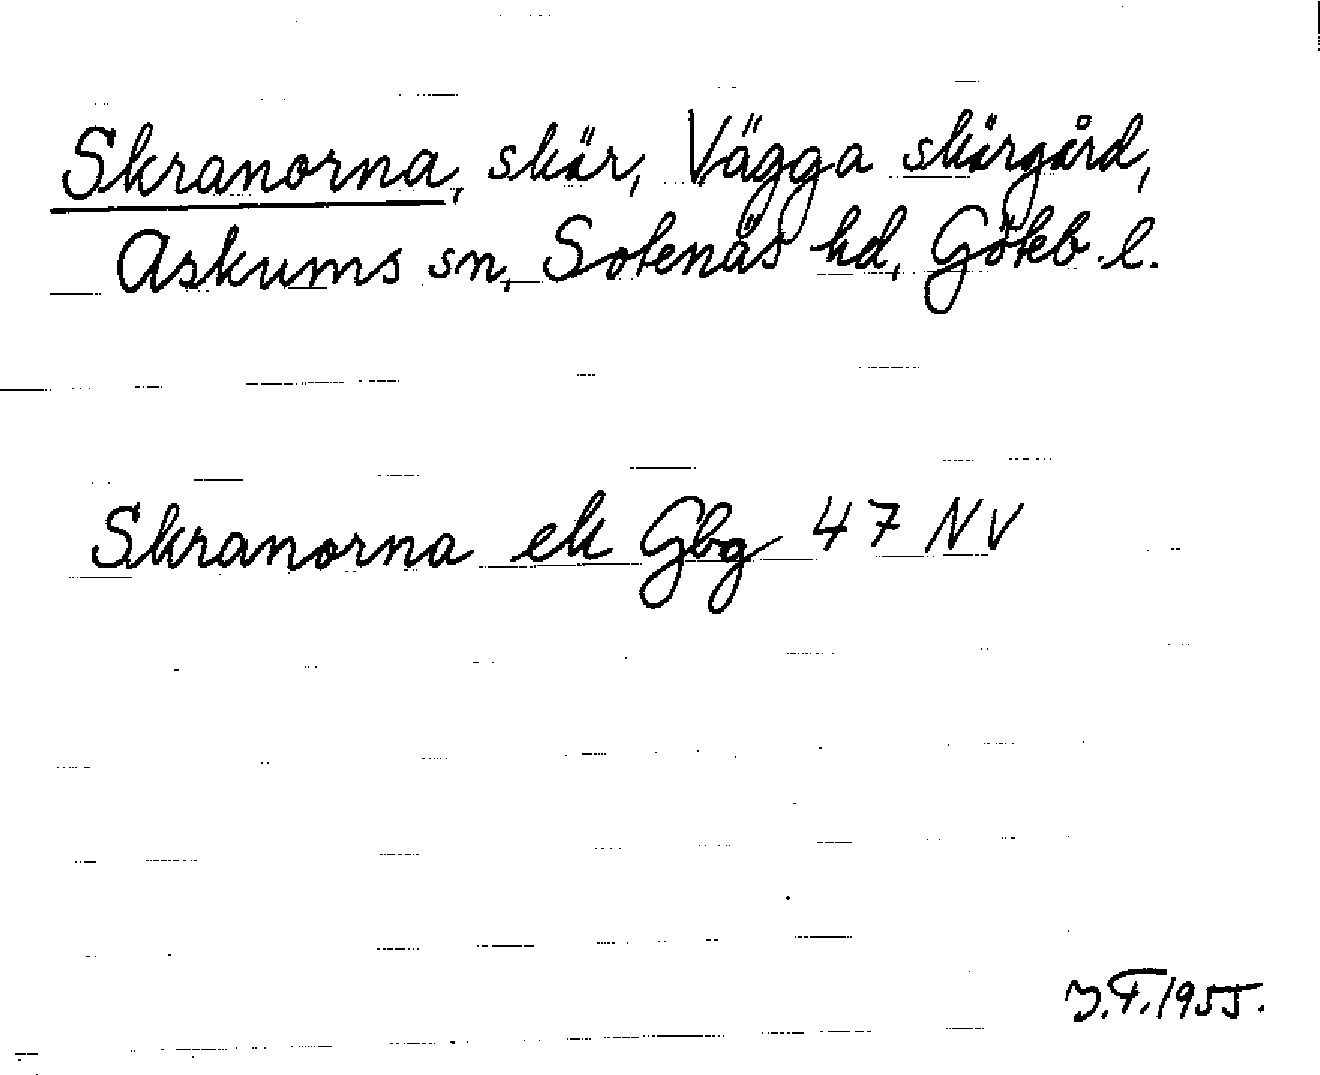 Skranorna, skär, Vägga skärgård,
Askums sn, Sotenäs hd, Göteb. l.
Skranorna ek Gbg 47 NV
J.F. 1955.